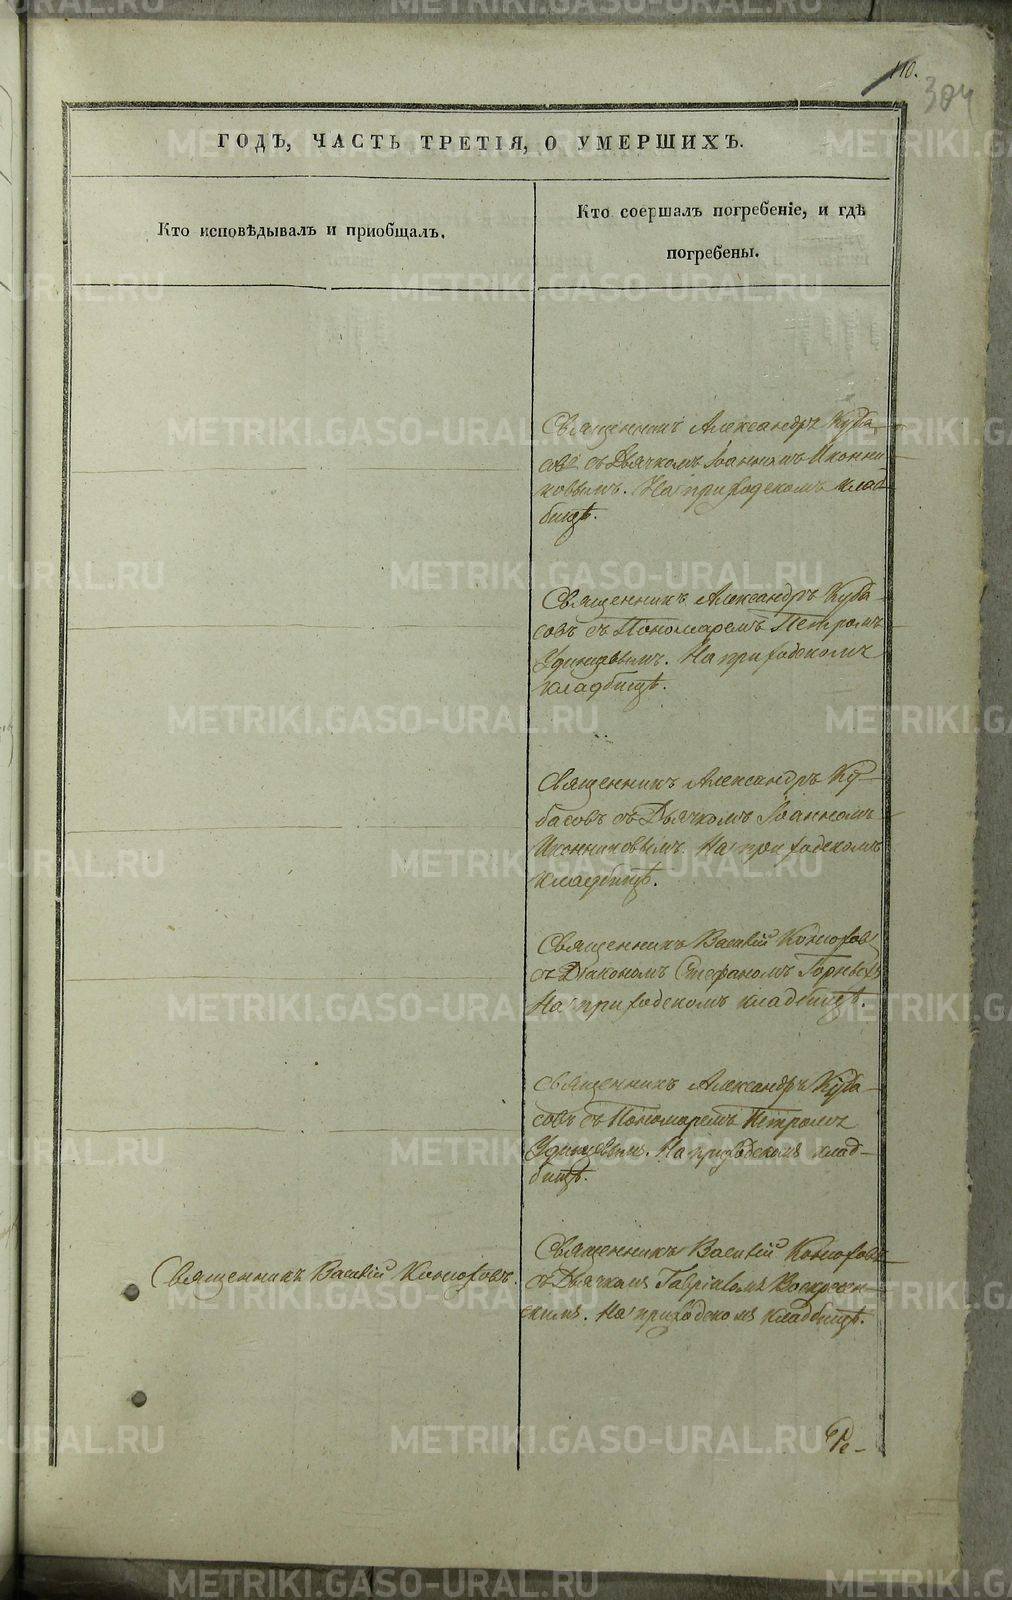 110.
304
ГОДЪ, ЧАСТЬ ТРЕТІЯ, О УМЕРШИХЪ.
Кто исповѣдывалъ и пріобщалъ.
Кто соершалъ погребеніе, и гдѣ
погребены.
Священникъ Александръ Куба-
совъ съ Дьячкомъ Іоанномъ Иконни-
ковымъ. На приходскомъ клад-
бищѣ.
Священникъ Александръ Куба-
совъ съ Пономаремъ Петромъ
Удинцовымъ. На приходскомъ
кладбищѣ.
Священникъ Александръ Ку-
басовъ съ Дьячкомъ Іоанномъ
Иконниковымъ. На приходскомъ
кладбищѣ.
Священникъ Василій Конюховъ
съ Діакономъ Стефаномъ
На приходскомъ кладбищѣ.
Священникъ Александръ Куба-
совъ съ Пономаремъ Петромъ
Удинцевымъ. На приходскомъ клад-
бищѣ.
Священникъ Василій Конюховъ.
Священникъ Василій Конюховъ
съ Дьячкомъ Гавріиломъ Воскресен-
скимъ. На приходскомъ кладбищѣ.
METRIKI.GASO-URAL.RU